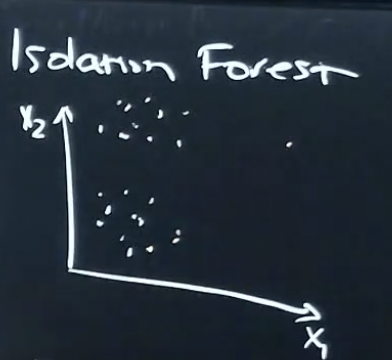 Isolation Forest
X2
X1